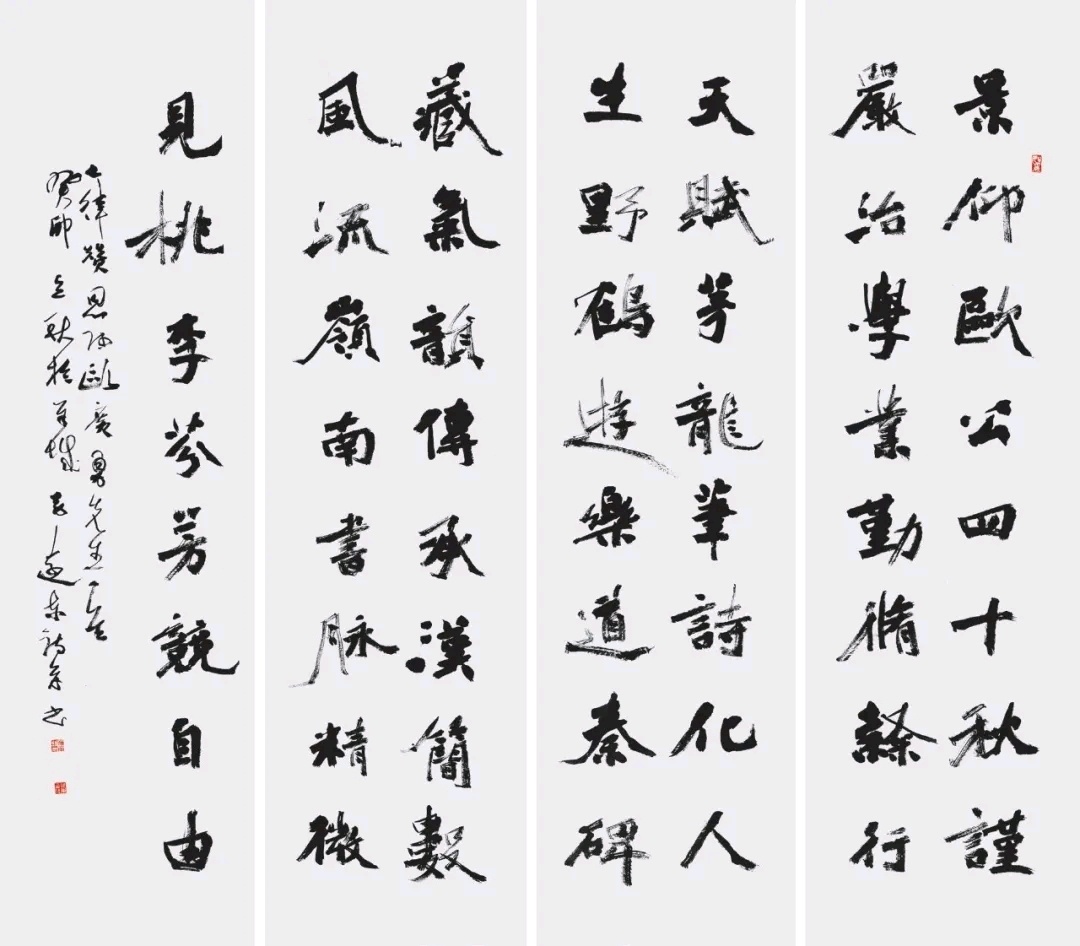 景仰歐公四十秋謹
嚴治學業勤脩隸行
天賦芳龍筆詩化人
生野鶴遊樂道秦碑
藏氣韻傳承漢簡數
風流嶺南書脈精微
見桃李芬芳競自由
七律贊恩師歐廣勇先生一首
癸卯立秋於羊城